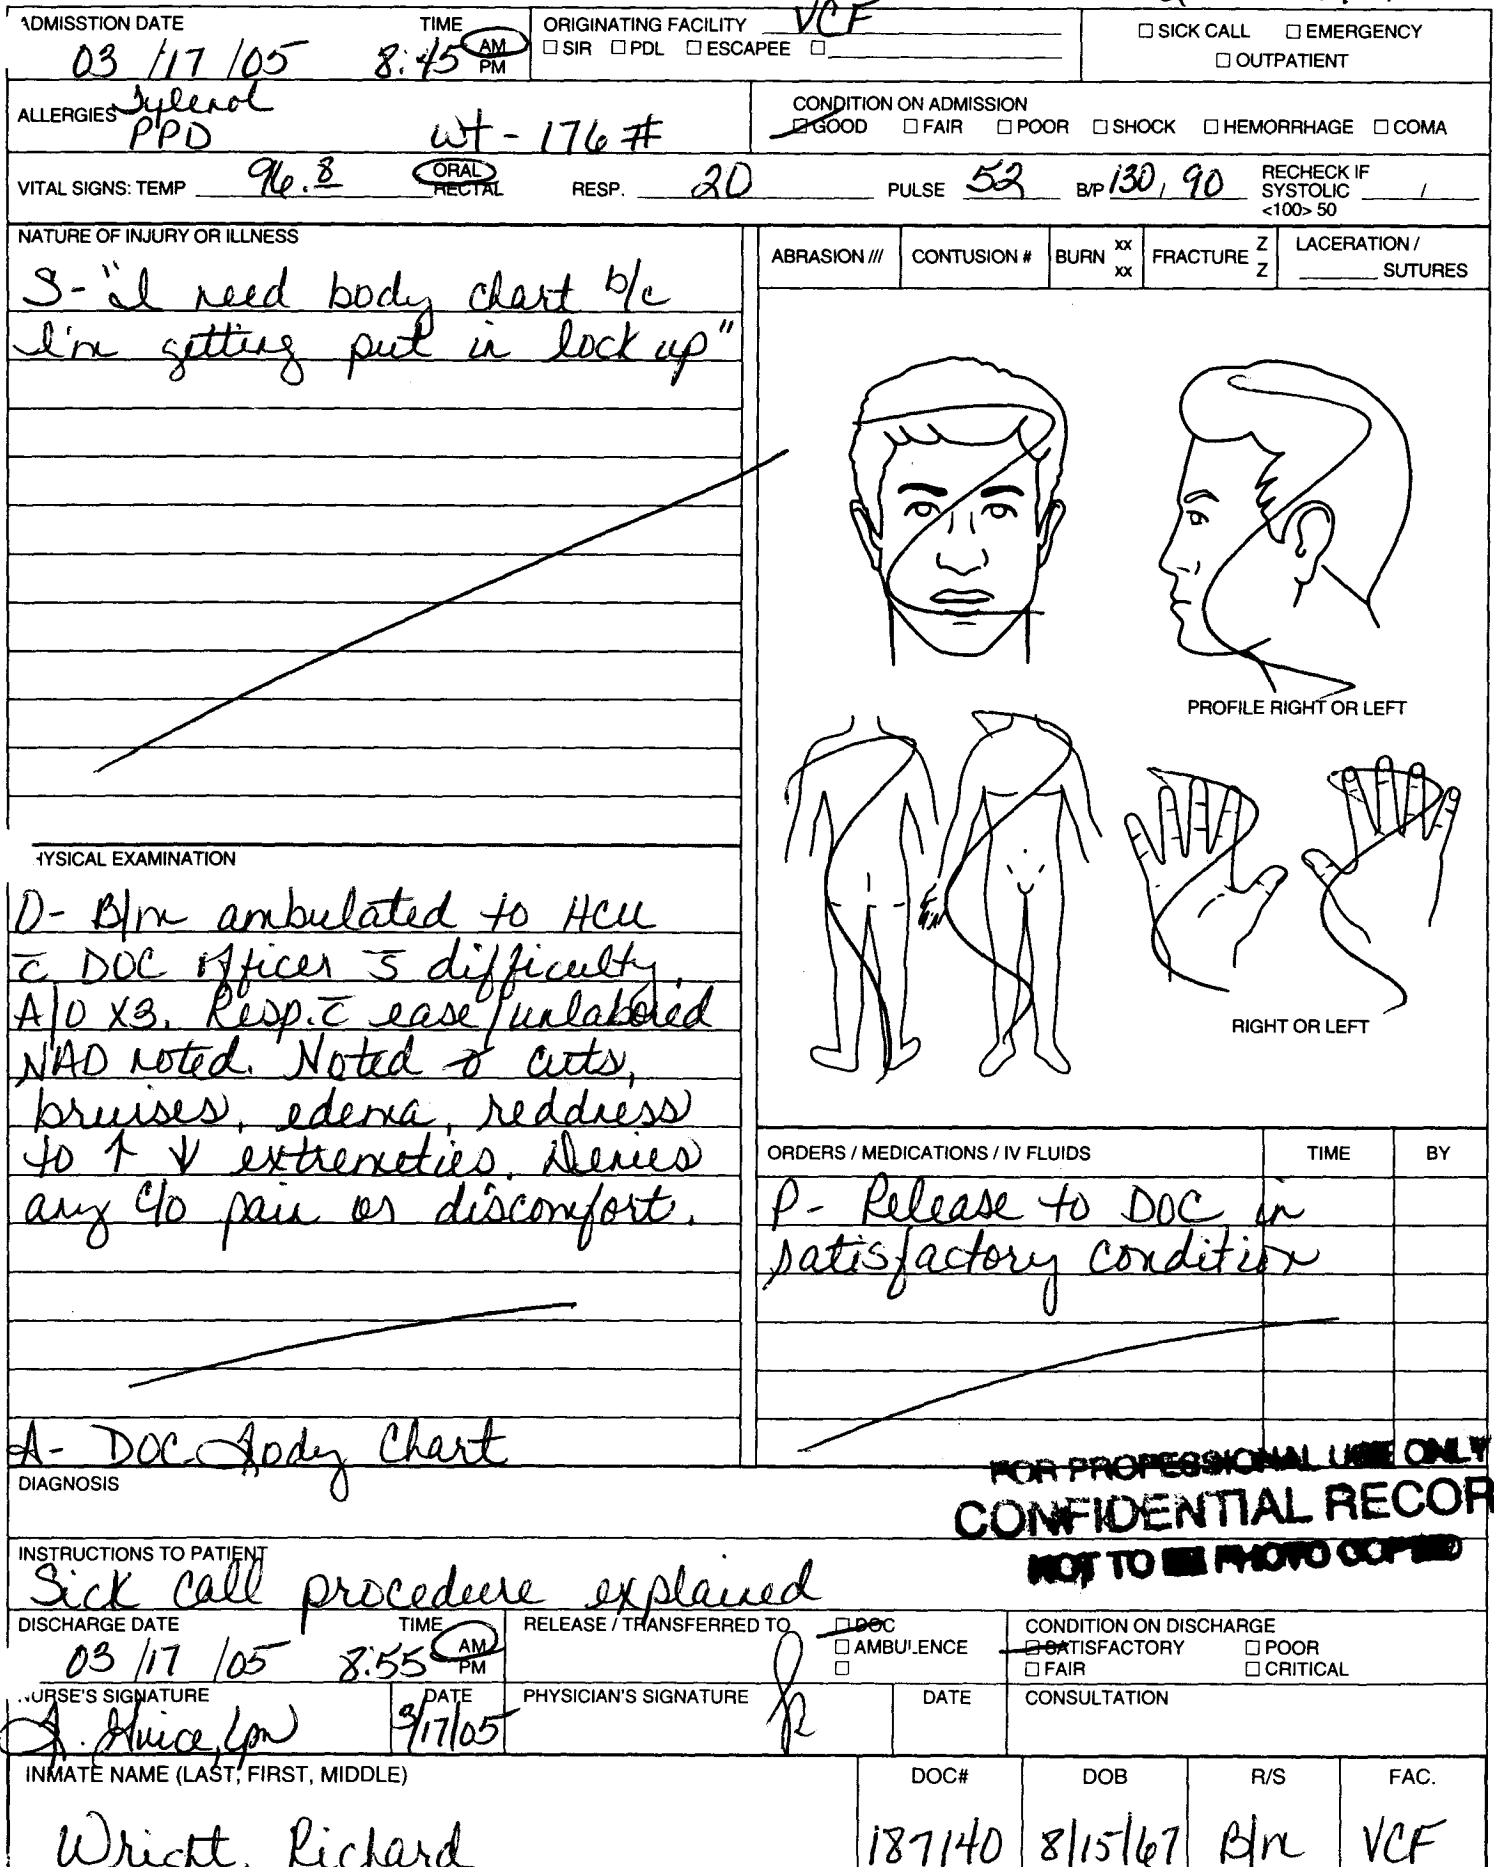 ADMISSTION DATE TIME ORIGINATING FACILITY VCF
☐ SICK CALL ☐ EMERGENCY
03 /17 /05 8:45 AM PM ☐ SIR ☐ PDL ☐ ESCAPEE ☐
☐ OUTPATIENT
ALLERGIES Tylenol
PPD wt - 176 #
CONDITION ON ADMISSION
☐ GOOD ☐ FAIR ☐ POOR ☐ SHOCK ☐ HEMORRHAGE ☐ COMA
VITAL SIGNS: TEMP 96.8 ORAL RECTAL RESP. 20 PULSE 52 B/P 130 / 90 RECHECK IF SYSTOLIC / <100> 50
NATURE OF INJURY OR ILLNESS
S- "I need body chart b/c
I'm getting put in lock up"
ABRASION /// CONTUSION # BURN xx xx FRACTURE Z Z LACERATION / SUTURES
PROFILE RIGHT OR LEFT
RIGHT OR LEFT
HYSICAL EXAMINATION
O- B/m ambulated to HCU
c̄ DOC officer s̄ difficulty.
A/O X3. Resp. c̄ ease/unlabored
NAD noted. Noted ø cuts,
bruises, edema, reddness
to ↑ ↓ extremeties. Denies
any c/o pain or discomfort.
A- DOC Body Chart
ORDERS / MEDICATIONS / IV FLUIDS TIME BY
P- Release to DOC in
satisfactory condition
FOR PROFESSIONAL USE ONLY
CONFIDENTIAL RECOR
NOT TO BE PHOTO COPIED
DIAGNOSIS
INSTRUCTIONS TO PATIENT
Sick call procedure explained
DISCHARGE DATE TIME RELEASE / TRANSFERRED TO ☐ DOC CONDITION ON DISCHARGE
03 /17 /05 8:55 AM PM ☐ AMBULENCE ☐ SATISFACTORY ☐ POOR
☐ ☐ FAIR ☐ CRITICAL
NURSE'S SIGNATURE DATE PHYSICIAN'S SIGNATURE DATE CONSULTATION
Lpn 3/17/05
INMATE NAME (LAST, FIRST, MIDDLE) DOC# DOB R/S FAC.
Wright, Richard 187140 8/15/67 B/m VCF